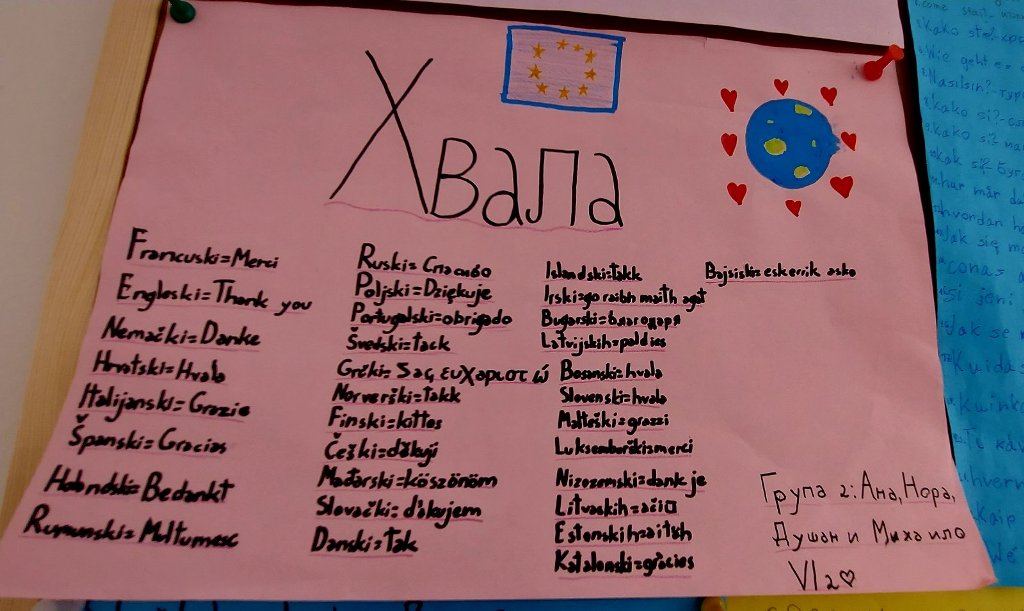 Хвала
Francuski=Merci
Engleski=Thank you
Nemački=Danke
Hrvatski=Hvala
Italijanski=Grazie
Španski=Gracias
Holandski=Bedankt
Rumunski=Multumesc
Ruski=Спасибо
Poljski=Dziękuje
Portugalski=obrigado
Švedski=tack
Grčki=Σας ευχαριστώ
Norverški=takk
Finski=kiitos
Češki=děkuji
Mađarski=köszönöm
Slovački=ďakujem
Danski=tak
Islandski=takk
Irski=go raibh maith agat
Bugarski=благодаря
Latvijskih=paldies
Bosanski=hvala
Slovenski=hvala
Malteški=grazzi
Luksemburški=merci
Nizozemski=dank je
Litvaskih=ačiū
Estonskih=aitäh
Katalonski=gràcies
Bajsiski=eskerrik asko
Група 2: Ана, Нора,
Душан и Михаило
VI2
Kako ste?
Wie geht es
Nasılsın?
Kako si?
Kako si?
hur mår du
hvordan
Jak się